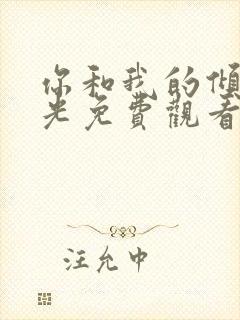 你和我的傾
光免費觀看
汪允中